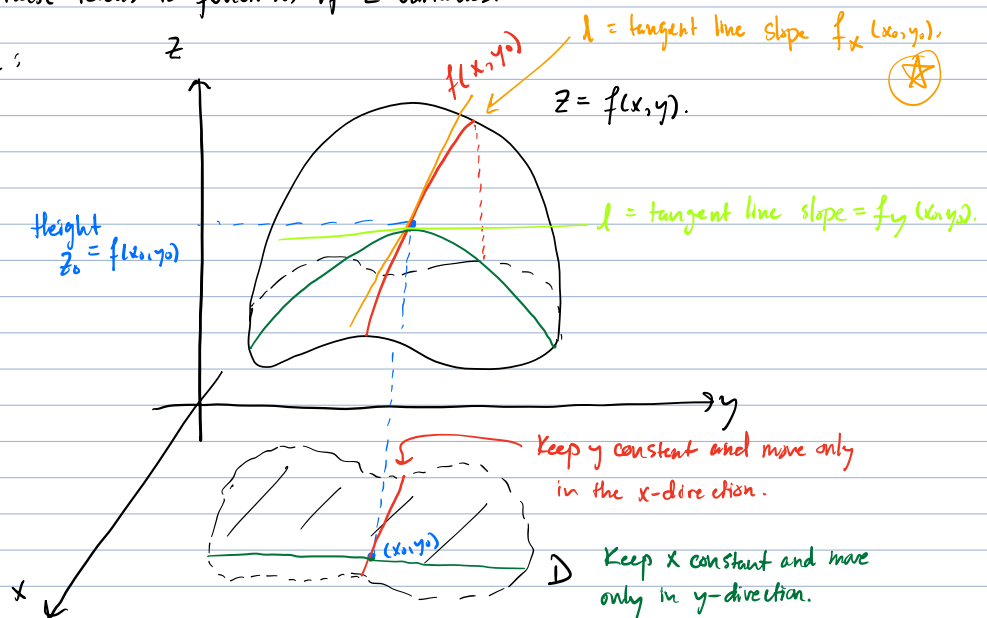 of 2 variables.
:
z
l = tangent line slope fₓ(x₀,y₀).
f(x,y₀)
z = f(x,y).
Height
z₀ = f(x₀,y₀)
l = tangent line slope = f_y(x₀,y₀).
y
Keep y constant and move only
in the x-direction.
(x₀,y₀)
D
Keep x constant and move
only in y-direction.
x